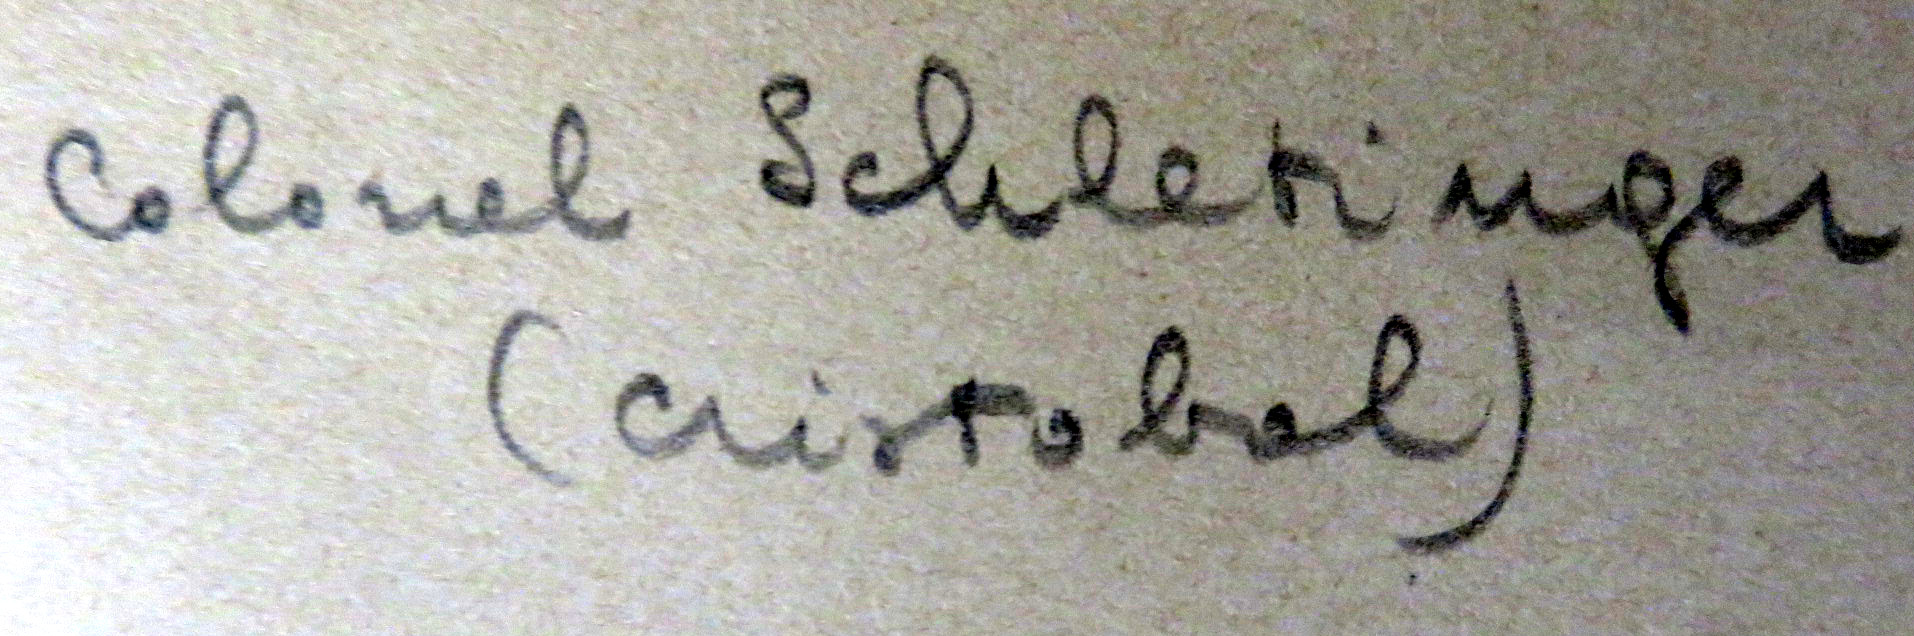 Colonel Schlesinger
(Cristobal)